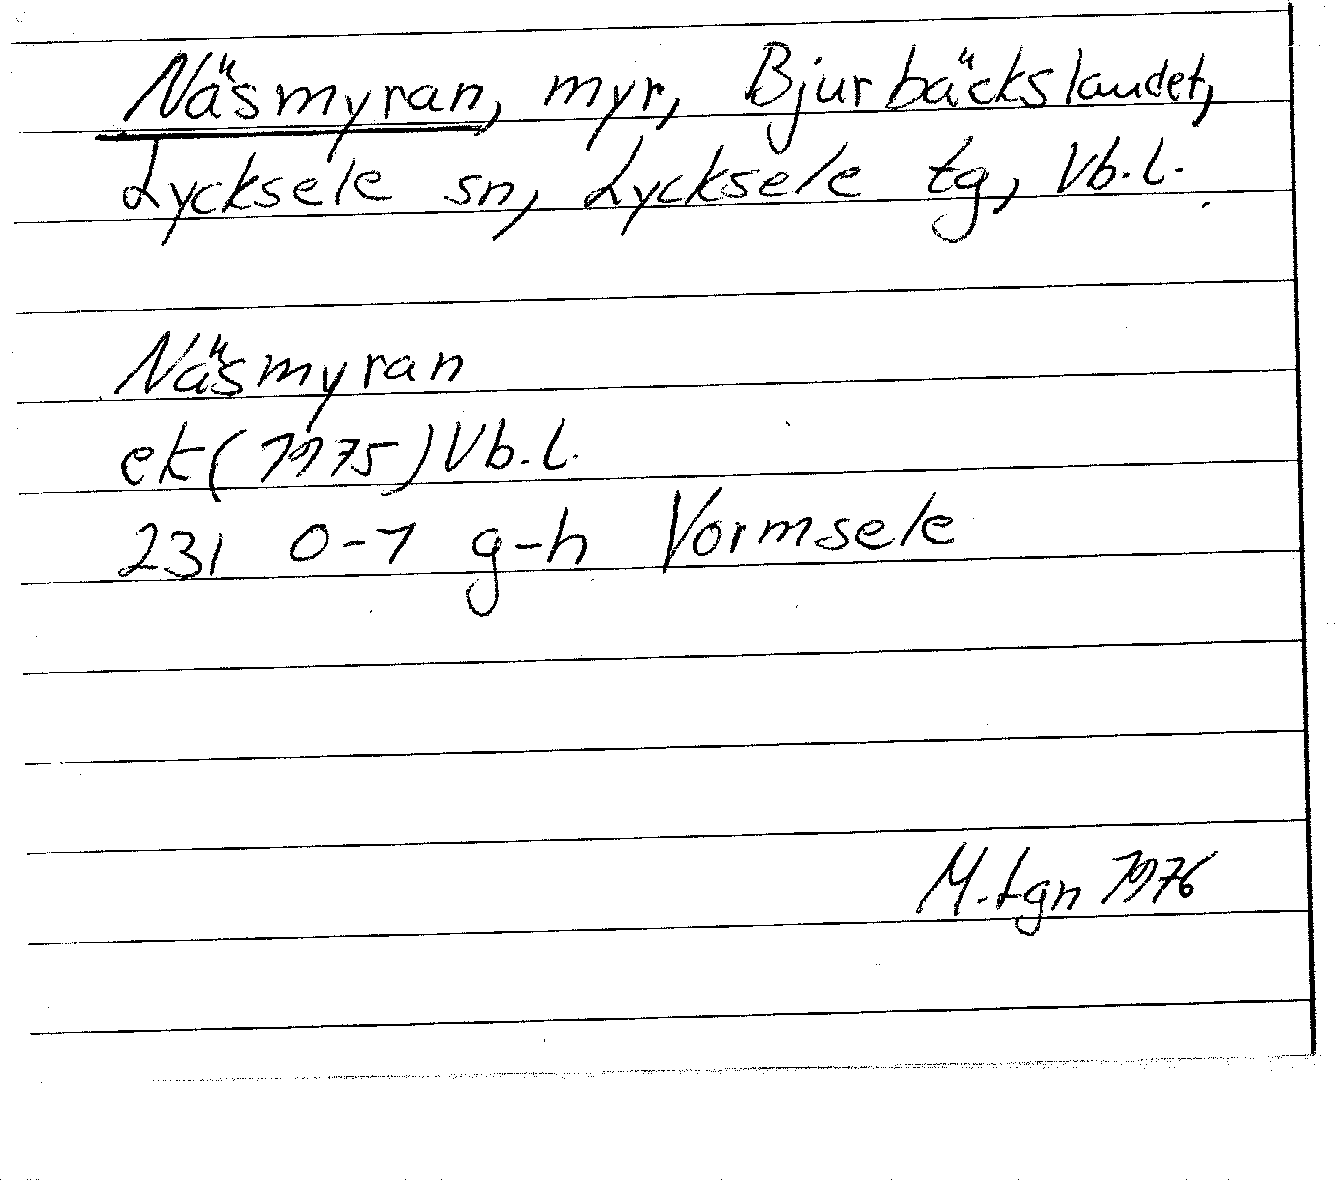 Näsmyran, myr, Bjurbäckslandet,
Lycksele sn, Lycksele tg, Vb.l.
Näsmyran
ek(1975)Vb.l.
23I 0-1 g-h Vormsele
M.tgn 1976